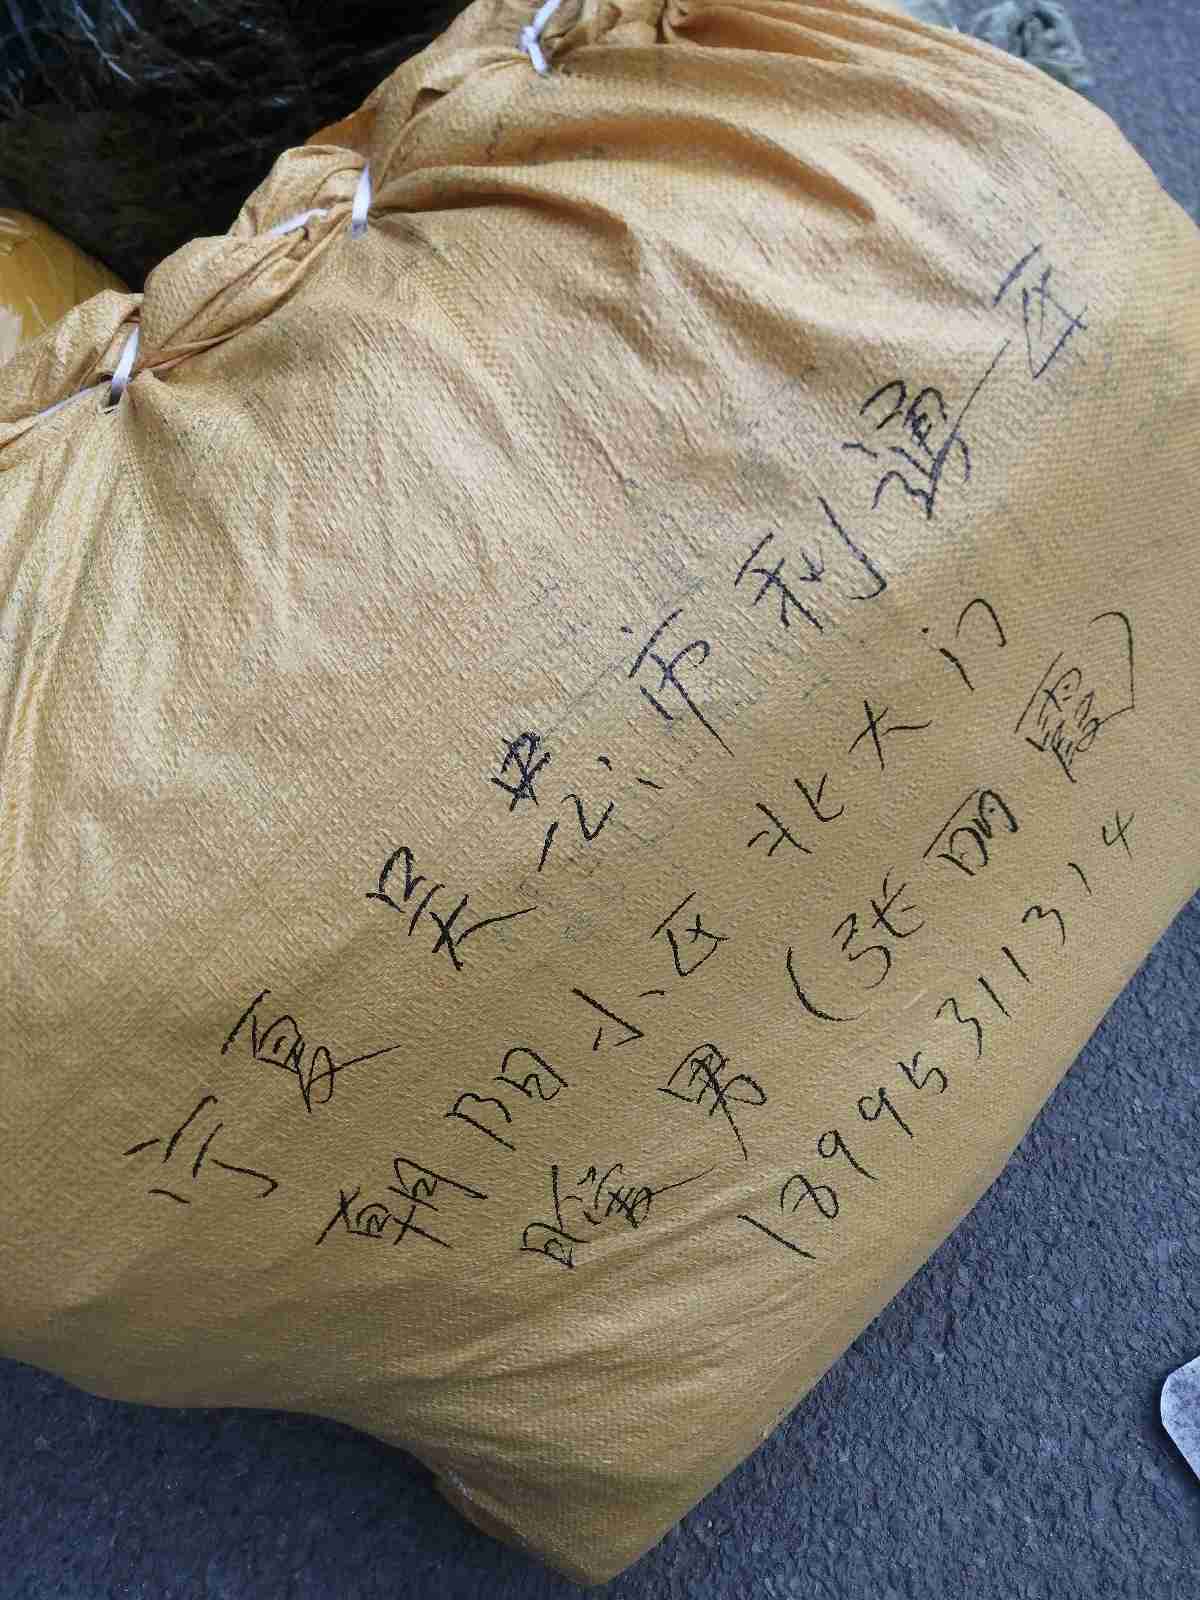 宁夏吴忠市利通区
朝阳小区北大门
陈海男(张丽霞)
18995311314